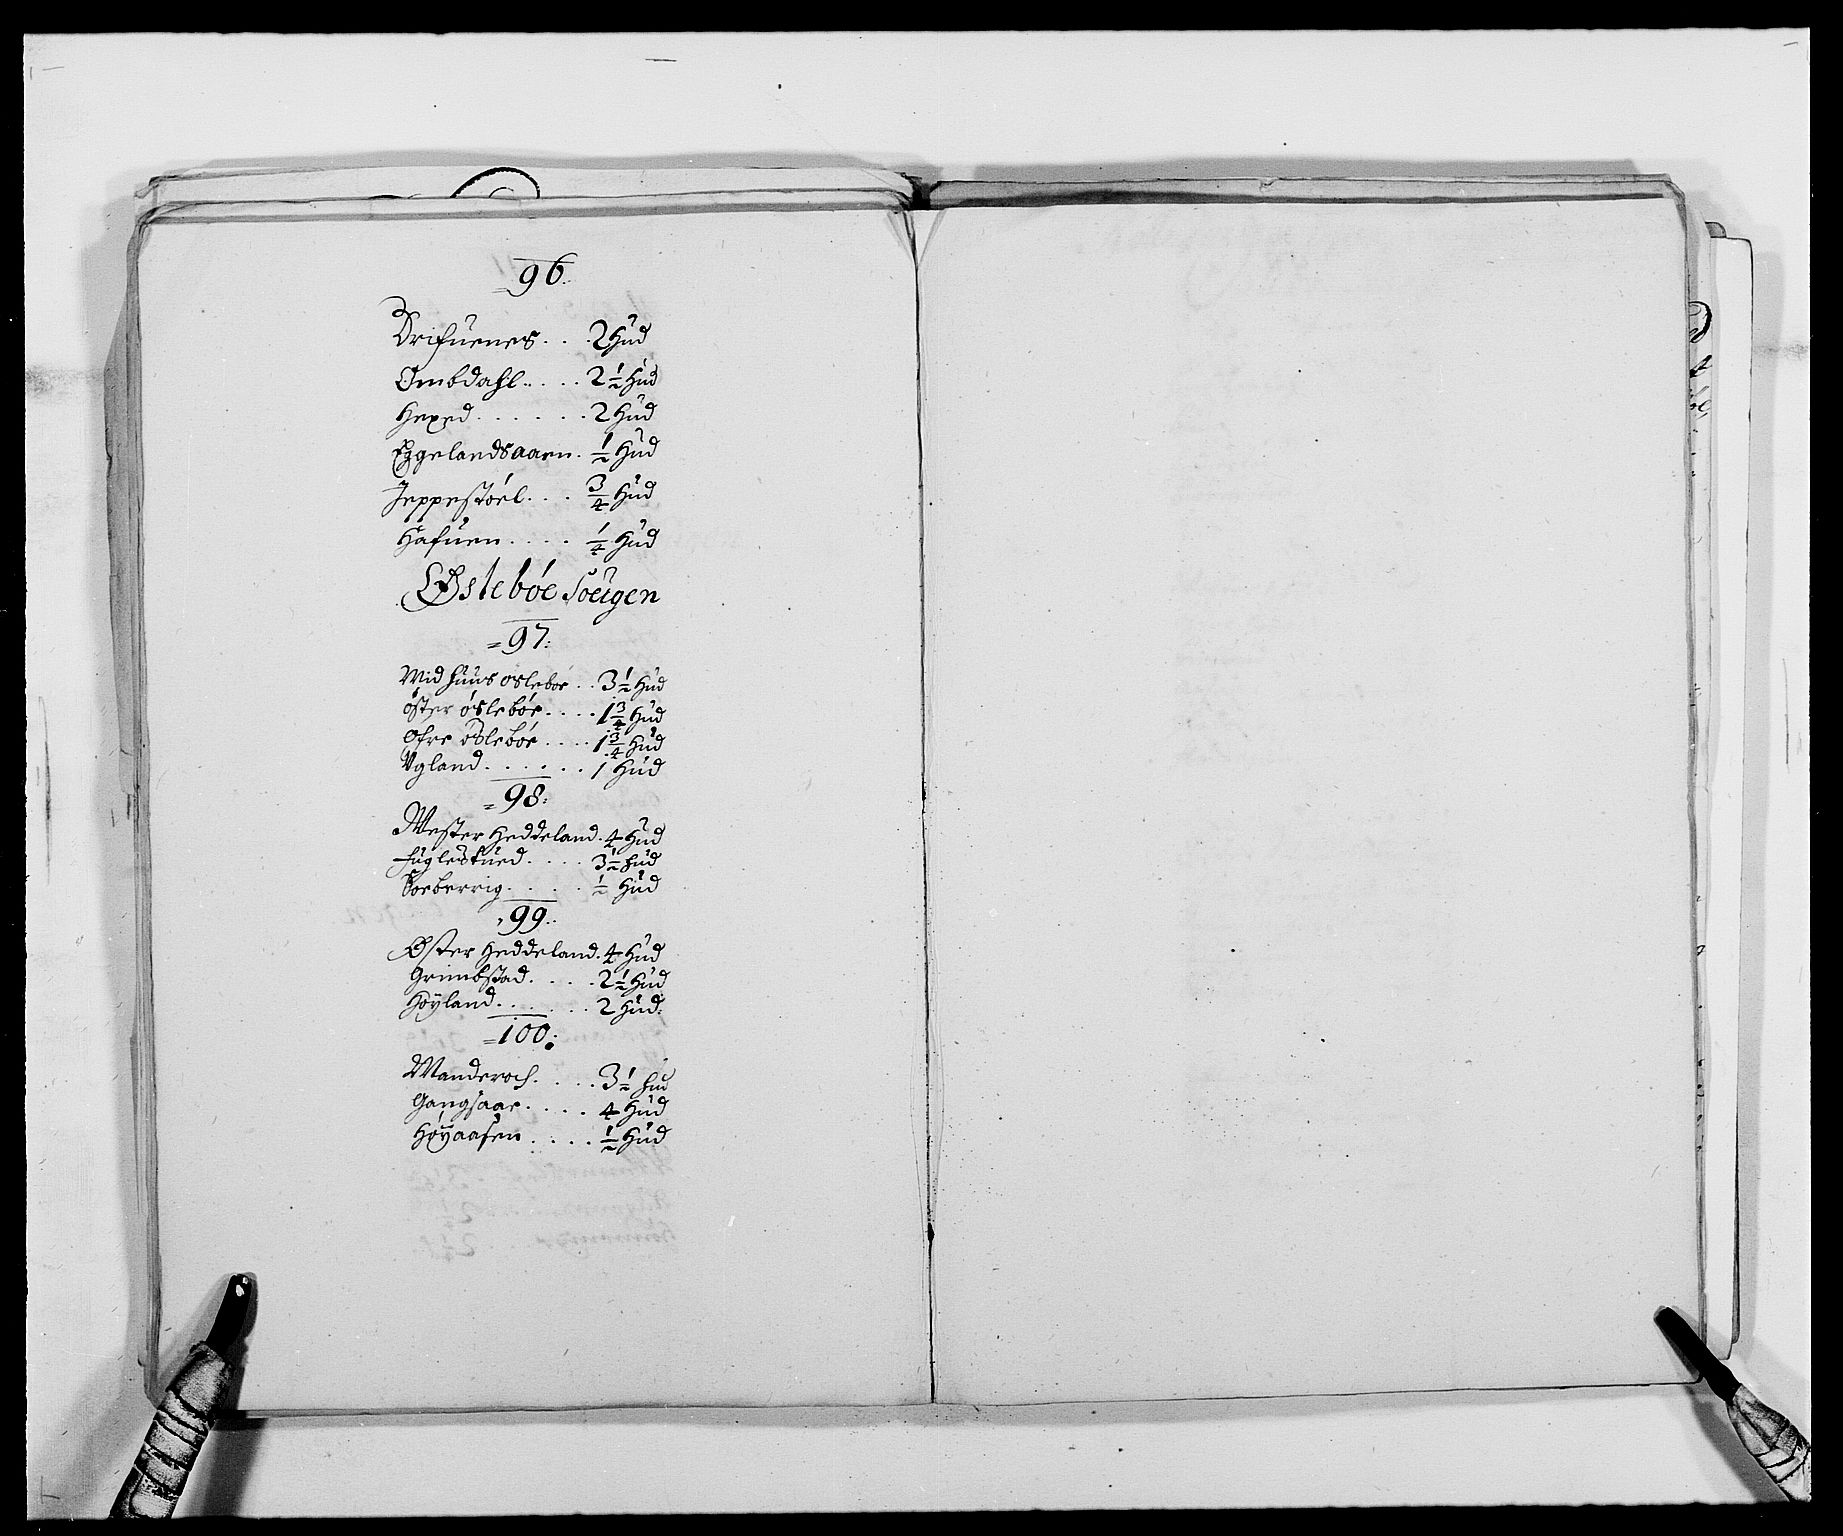 96.
Drifuenes . . . 2 Hud
Ombdahl . . . . . 2 1/2 Hud
Hexed . . . . . . 2 Hud
Eggelandsaaen . 1/2 Hud
Jeppestöel . . . 3/4 Hud
Hafuen . . . . 1/4 Hud
Østebøe Soeigen
= 97:
Midhuus osleboe . . 3 1/2 Hud
öster öslebøe . . . . 1 3/4 Hud
Ofre öslebøe . . . . 1 3/4 Hud
Vgland . . . . . . 1 Hud
= 98:
Wester Heddeland . 4 Hud
Fuglestued . . . . 3 1/2 Hud
Soeberrig . . . . . 1/2 Hud
99.
Øster Heddeland . 4 Hud
Grimbstad . . . . 2 1/2 Hud
Høyland . . . . . . 2 Hud:
= 100:
Manderoch . . . . 3 1/2 Hud
Gangsaae . . . . 4 Hud
Høyaasen . . . . 1/2 Hud